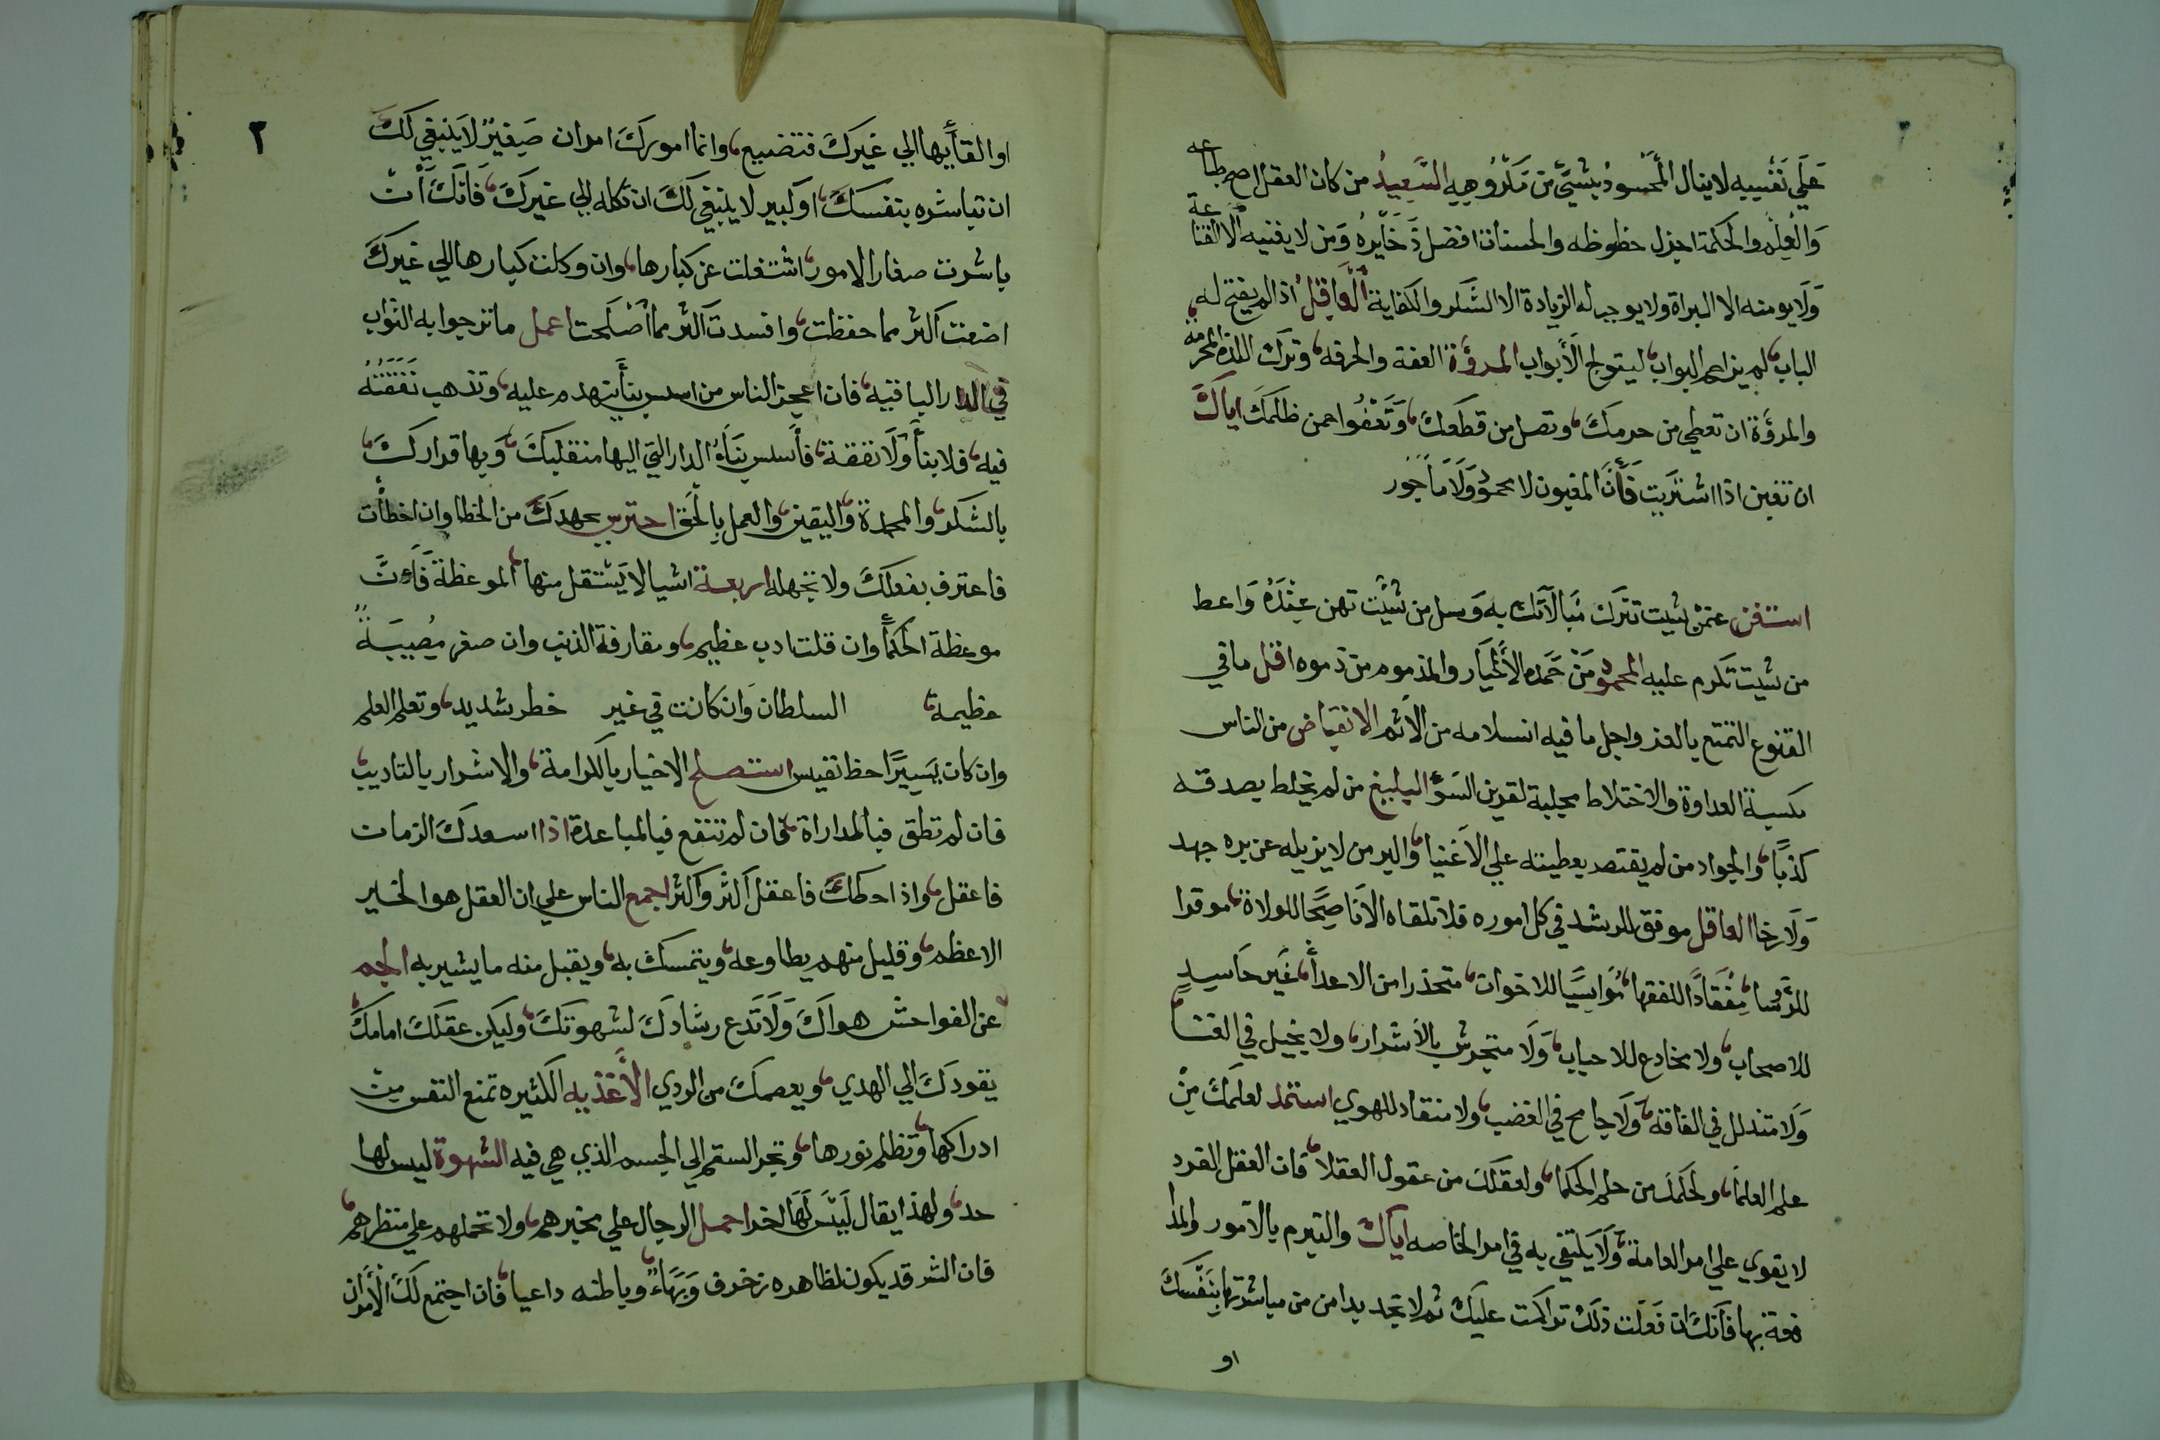 عَلَي نَفْسِيه لا ينال المَحْسودُ بِشيئٍ من مَكْرُوهِه السَّعِيدُ من كان العقل اصح طباعه
وَالعِلْمُ والحكمة اجزل حظوظه والحسنات افضل ذَخَايِرُهُ وَمن لا يغنيه الا القناعة
وَلا يومنه الا البراة ولا يوجب له الزيادة الا الشكر والكفاية العَاقِلُ اذا لم يفتح له
الباب لم يزاحم البواب ليتولج الأبواب المروءة العفة والحرفه وترك اللذة المحرمة
والمروءة ان تعطي من حرمك وتصل من قطعك وَتَعْفُوا عمن ظلمَك اياكَ
ان تغبن اذا اشتريت فَأَنَّ المغبون لا محمود وَلَا مَاجُور
استغن عمن شيت تترك مُبَالَاتَك به وسل من شيت تهن عِنْدَهُ وَاعط
من شيت تكرم عليه المحمود مَنْ حَمَده الأخْيَار والمذموم من ذموه اقل ما في
القنوع التمتع بالعز واجل ما فيه السلامه من الأثم الانقباض من الناس
مكسبة العداوة والاختلاط مجلبة لقرين السَوْء البليغ من لم يخلط بصدقه
كذبًا والجواد من لم يقتصد بعطيته علي الاغنيا والبر من لا يزيله عن بره جهد
وَلَا رخا العاقل موفق للرشد في كل اموره فلا تلقاه الا نَاصِحًا للولاة موقرا
للرؤسا مِفْقَادًا للفقها مُوَاسِيًا للاخوان متحذرا من الاعدأ غَير حَاسِدٍ
للاصحاب ولا مخادع للاحباب وَلَا متحرش بالاشرار ولا بخيل في الغنا
وَلَا متذلل في الفاقه وَلَا جامح في الغضب ولا منقاد للهوي استمد لعلمَكَ مِنْ
علم العلمَا ولحكمك من حلم الحكما ولعقلك من عقول العقلا فان العقل الفرد
لا يقوي علي امر العامة ولَا يكتفي به في امر الخاصه اياك والتبرم بالامور والمدا
فعة بها فأنك ان فعلت ذلك تراكمت عليك ثم لا تجد بدا من من مباشرتها بِنَفْسكَ
او
٢
او القأيها الي غَيرك فتضيع وانما امورك امران صَغِيرٌ لا ينبغي لك
ان تباشره بنفسك او كبير لا ينبغي لك ان تكله الي غيرك فانك أن
باشرت صغار الامور اشتغلت عن كبارها وان وكلت كبارها الي غيرك
اضعت اكثر مما حفظت وافسدت اكثر مما اصْلَحت اعمل ما ترجوا به الثواب
في الدار الباقيه فان اعجز الناس من اسس بنأ يتهدم عليه وتذهب نَفَقَتهُ
فيه فلا بنأ وَلَا نفقة فأسس بنَاء الدار التي اليها منقلبك وَبها قرارك
بالشكر والمحمدة واليقين والعمل بالحَق احترس بجهدك من الخطا وان اخطأت
فاعترف بفعلك ولا تجهله اربعة اشيا لا يَستقل منها الموعظة فَأن
موعظة الحكمأ وان قلت ادب عظيم ومقارفة الذنب وان صغر مُصِيبَةٌ
عظيمة السلطان وَان كانت في غير خطر شديد وتعلم العلم
وان كان يَسِيرًا حظ نفيس استصلح الاخيار بالكرامة والاشرار بالتاديب
فان لم تطق فبالمداراة فان لم تنتفع فبالمباعدة اذا اسعدك الزمان
فاعقل واذا حركك فاعقل اكثر واكثر اجمع الناس علي ان العقل هو الخير
الاعظم وقليل منهم يطاوعه ويتمسك به ويقبل منه ما يشير به الجم
عن الفواحش هواكَ وَلَا تَدع رشادك لشهوتك وليكن عقلك امامك
يقودك الي الهدي ويعصمك من الردي الأغذيه الكثيره تمنع النفس من
ادراكها وتظلم نورها وتجر السقم الي الجسم الذي هي فيه الشهوة ليس لها
حد ولهذا يقال لَيسَ لَهَا اخر احمل الرجال علي مخبرهم ولا تحملهم علي منظرهم
فان الشر قد يكون لظاهره زخرف وَبَهَاءٌ وباطنه داعيا فان اجتمع لك الأمران